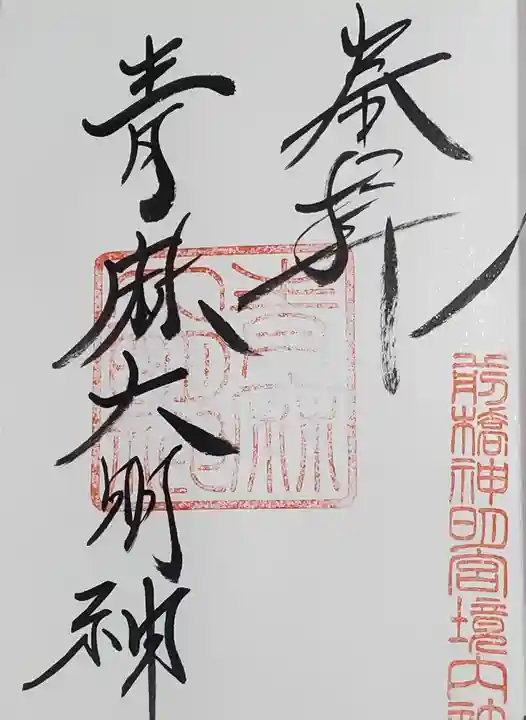 前橋神明宮境内社
奉拝
青麻大明神
青麻大明神